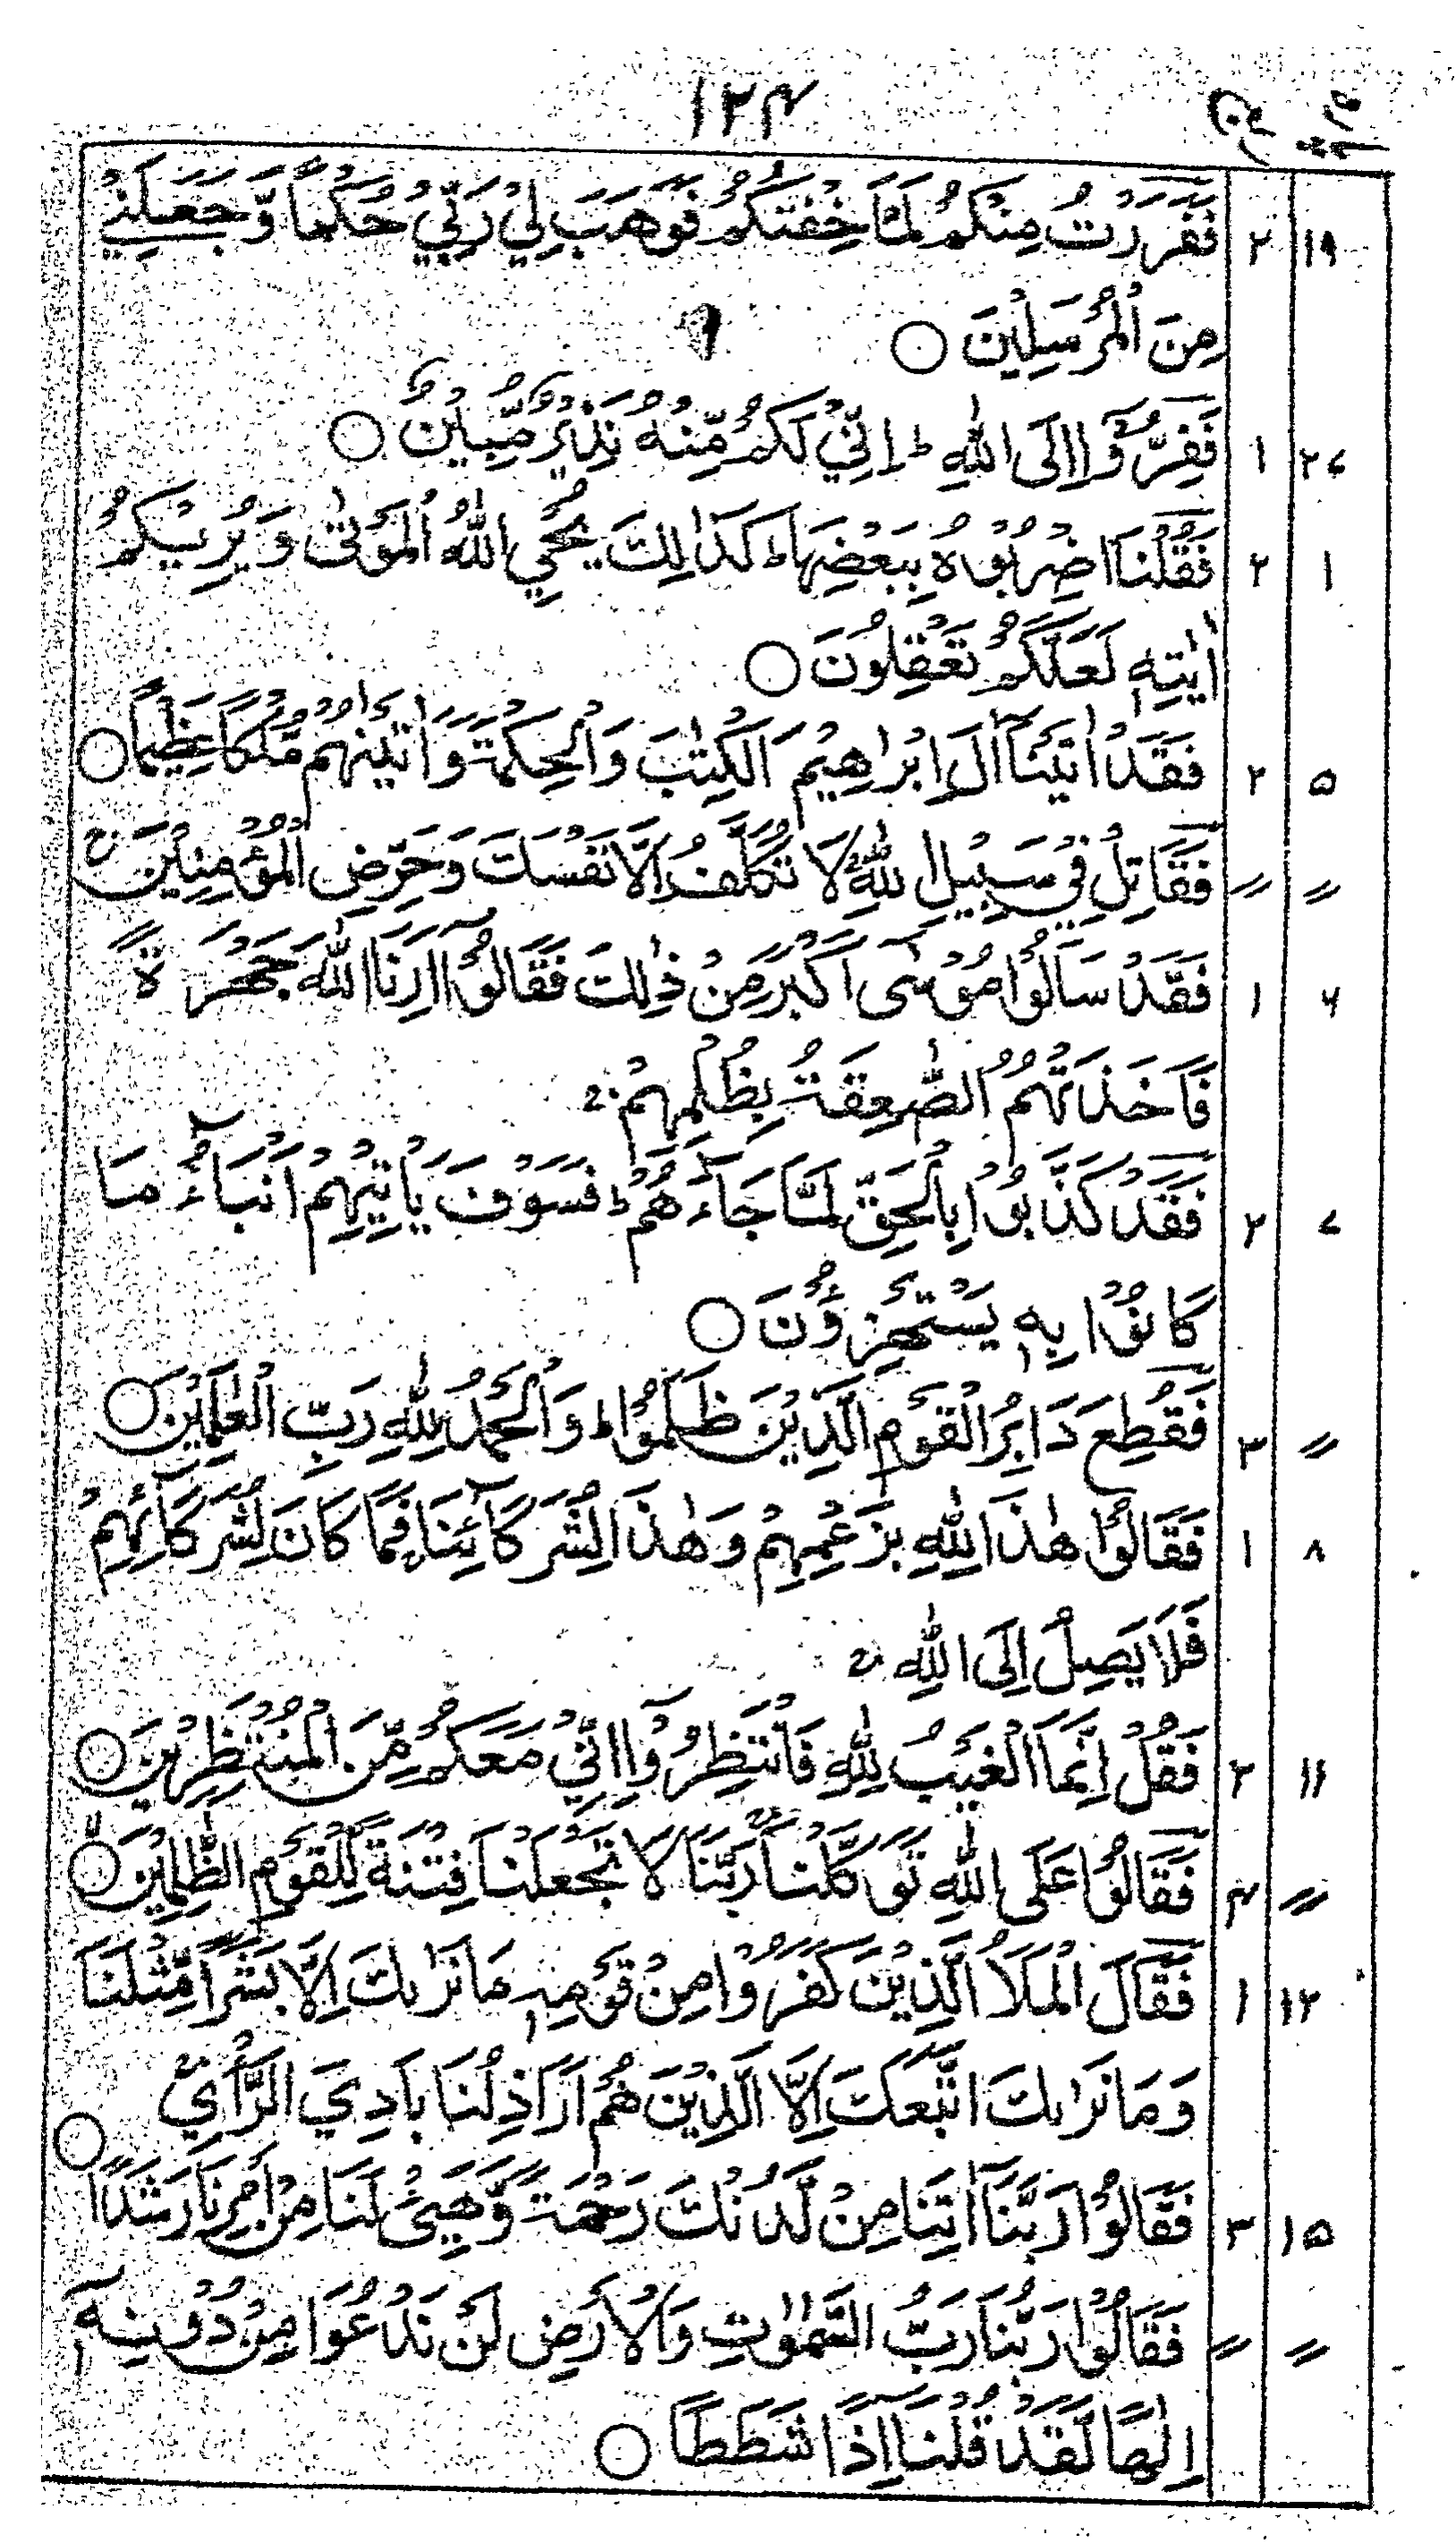 ۱۲۴
پارہ ربع
۱۹ ۲ فَفَرَرْتُ مِنْكُمْ لَمَّا خِفْتُكُمْ فَوَهَبَ لِيْ رَبِّيْ حُكْمًا وَّجَعَلَنِيْ
مِنَ الْمُرْسَلِيْنَ ○
۲۷ ۱ فَفِرُّوْٓا اِلَى اللّٰهِ ؕ اِنِّيْ لَكُمْ مِّنْهُ نَذِيْرٌ مُّبِيْنٌ ○
۱ ۲ فَقُلْنَا اضْرِبُوْهُ بِبَعْضِهَا ؕ كَذٰلِكَ يُحْيِ اللّٰهُ الْمَوْتٰى وَيُرِيْكُمْ
اٰيٰتِهٖ لَعَلَّكُمْ تَعْقِلُوْنَ ○
۵ ۲ فَقَدْ اٰتَيْنَآ اٰلَ اِبْرٰهِيْمَ الْكِتٰبَ وَالْحِكْمَةَ وَاٰتَيْنٰهُمْ مُّلْكًا عَظِيْمًا ○
〃 〃 فَقَاتِلْ فِيْ سَبِيْلِ اللّٰهِ ۚ لَا تُكَلَّفُ اِلَّا نَفْسَكَ وَحَرِّضِ الْمُؤْمِنِيْنَ ۚ
۶ ۱ فَقَدْ سَاَلُوْا مُوْسٰٓى اَكْبَرَ مِنْ ذٰلِكَ فَقَالُوْٓا اَرِنَا اللّٰهَ جَهْرَةً
فَاَخَذَتْهُمُ الصّٰعِقَةُ بِظُلْمِهِمْ ۚ
۷ ۲ فَقَدْ كَذَّبُوْا بِالْحَقِّ لَمَّا جَآءَهُمْ ؕ فَسَوْفَ يَاْتِيْهِمْ اَنْۢبٰٓؤُا مَا
كَانُوْا بِهٖ يَسْتَهْزِءُوْنَ ○
〃 ۳ فَقُطِعَ دَابِرُ الْقَوْمِ الَّذِيْنَ ظَلَمُوْا ؕ وَالْحَمْدُ لِلّٰهِ رَبِّ الْعٰلَمِيْنَ ○
۸ ۱ فَقَالُوْا هٰذَا لِلّٰهِ بِزَعْمِهِمْ وَهٰذَا لِشُرَكَآئِنَا ۚ فَمَا كَانَ لِشُرَكَآئِهِمْ
فَلَا يَصِلُ اِلَى اللّٰهِ ۚ
۱۱ ۲ فَقُلْ اِنَّمَا الْغَيْبُ لِلّٰهِ فَانْتَظِرُوْٓا اِنِّيْ مَعَكُمْ مِّنَ الْمُنْتَظِرِيْنَ ○
〃 ۴ فَقَالُوْا عَلَى اللّٰهِ تَوَكَّلْنَا ۚ رَبَّنَا لَا تَجْعَلْنَا فِتْنَةً لِّلْقَوْمِ الظّٰلِمِيْنَ ○
۱۲ ۱ فَقَالَ الْمَلَاُ الَّذِيْنَ كَفَرُوْا مِنْ قَوْمِهٖ مَا نَرٰىكَ اِلَّا بَشَرًا مِّثْلَنَا
وَمَا نَرٰىكَ اتَّبَعَكَ اِلَّا الَّذِيْنَ هُمْ اَرَاذِلُنَا بَادِيَ الرَّاْيِ ۚ
۱۵ ۳ فَقَالُوْا رَبَّنَآ اٰتِنَا مِنْ لَّدُنْكَ رَحْمَةً وَّهَيِّئْ لَنَا مِنْ اَمْرِنَا رَشَدًا ○
〃 〃 فَقَالُوْا رَبُّنَا رَبُّ السَّمٰوٰتِ وَالْاَرْضِ لَنْ نَّدْعُوَا۟ مِنْ دُوْنِهٖٓ
اِلٰهًا لَّقَدْ قُلْنَآ اِذًا شَطَطًا ○